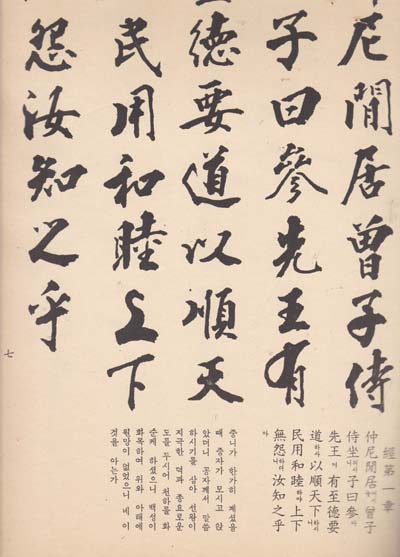 尼閒居曾子侍
子曰參先王有
德要道以順天
民用和睦上下
怨汝知之乎
經第一章
仲尼閒居 曾子
侍坐 子曰參
先王이 有至德要
道하사 以順天下하시니
民用和睦하야 上下
無怨하니 汝知之乎
아
중니가 한가히 계셨을
때 증자가 모시고 앉
았더니 공자께서 말씀
하시기를 삼아 선왕이
지극한 덕과 종요로운
도를 두시어 천하를 화
순케 하셨으니 백성이
화목하여 위와 아래에
원망이 없었으니 네 이
것을 아는가
七